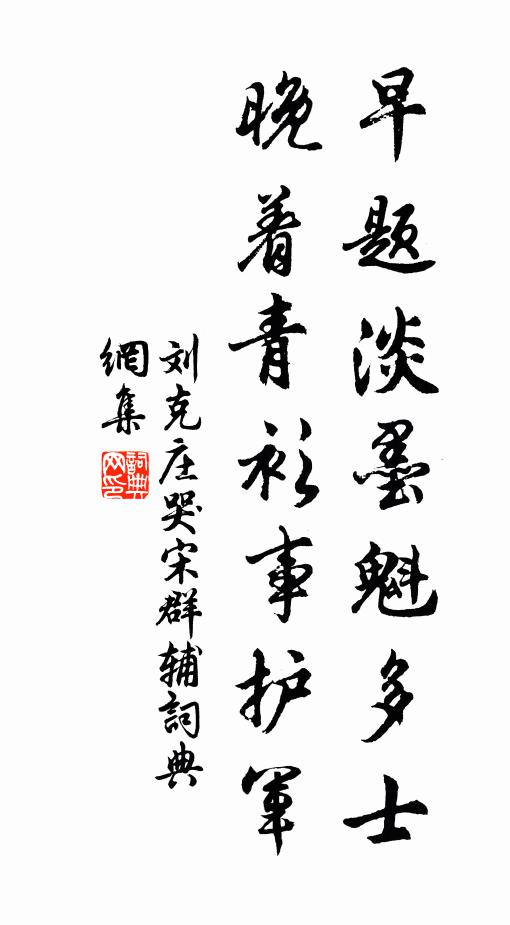 早题淡墨魁多士
晚着青衫事护军
刘克庄哭宋群辅詞典
網集
詞典
网印